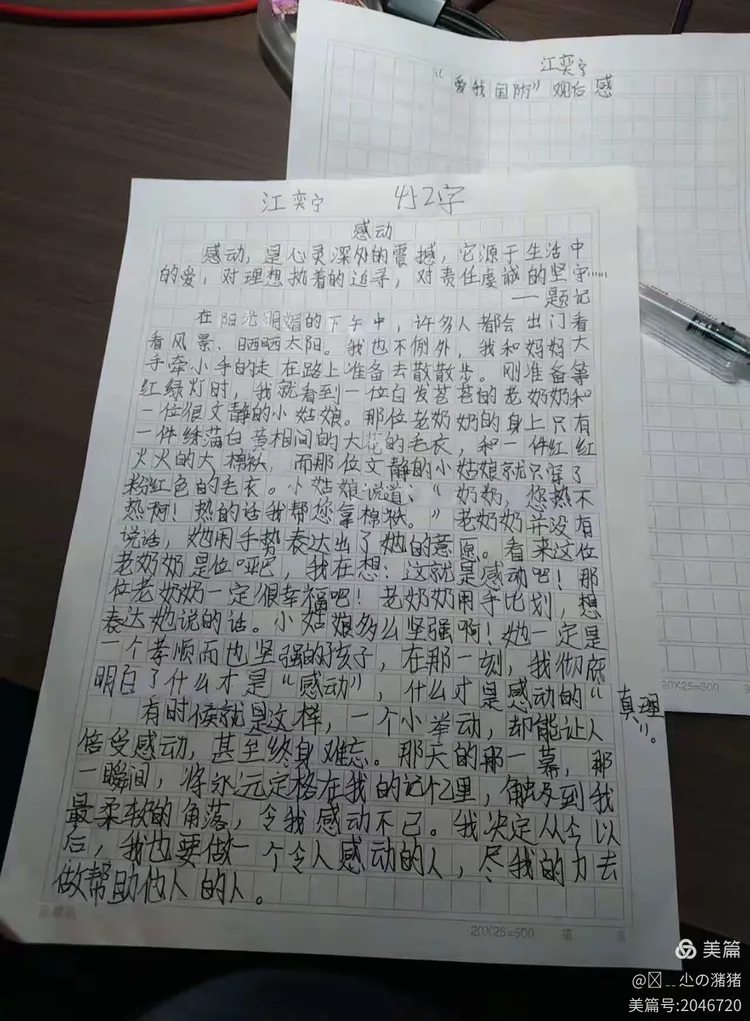 江奕宁
“爱我国防”观后感
江奕宁 452字
感动
感动，是心灵深处的震撼，它源于生活中
的爱，对理想执着的追寻，对责任虔诚的坚守……
——题记
在阳光明媚的下午中，许多人都会出门看
看风景、晒晒太阳。我也不例外，我和妈妈大
手牵小手的走在路上准备去散散步。刚准备等
红绿灯时，我就看到一位白发苍苍的老奶奶和
一位很文静的小姑娘。那位老奶奶的身上只有
一件绣满白黄相间的大花的毛衣，和一件红红
火火的大棉袄，而那位文静的小姑娘就只穿了
粉红色的毛衣。小姑娘说道：“奶奶，您热不
热啊！热的话我帮您拿棉袄。”老奶奶并没有
说话，她用手势表达出了她的意愿。看来这位
老奶奶是位哑巴，我在想：这就是感动吧！那
位老奶奶一定很幸福吧！老奶奶用手比划，想
表达她说的话。小姑娘多么坚强啊！她一定是
一个孝顺而也坚强的好孩子，在那一刻，我彻底
明白了什么才是“感动”，什么才是感动的“
真理”。
有时候就是这样，一个小举动，却能让人
倍受感动，甚至终身难忘。那天的那一幕，那
一瞬间，将永远定格在我的记忆里，触及到我
最柔软的角落，令我感动不已。我决定从今以
后，我也要做一个令人感动的人，尽我的力去
做帮助他人的人。
20X25=500
20X25=500
美篇
美篇号:2046720